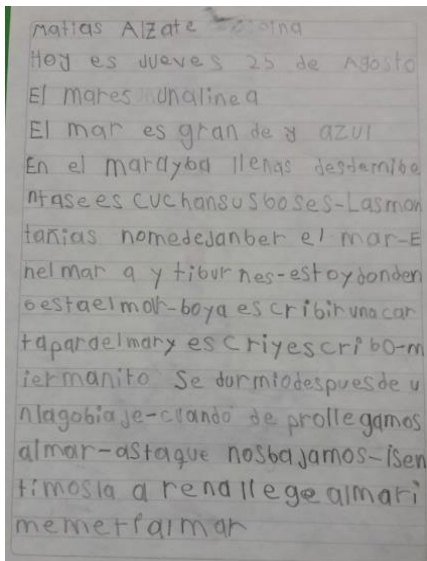 Matias Alzate
Hoy es Jueves 25 de Agosto
El mares unalinea
El mar es gran de y azul
En el marayba llenas desdemibe
ntasees cuchansusboses-Lasmon
tañias nomedejanber el mar-E
nelmar a y tibur nes-estoydonden
oestaelmar-boya es cribir una car
tapardelmary es criyescribo-m
iermanito Se durmiodespuesde u
nlagobiaje-cuando de prollegamos
almar-astaque nosbajamos-isen
timosla a rena llege almari
memetialmar